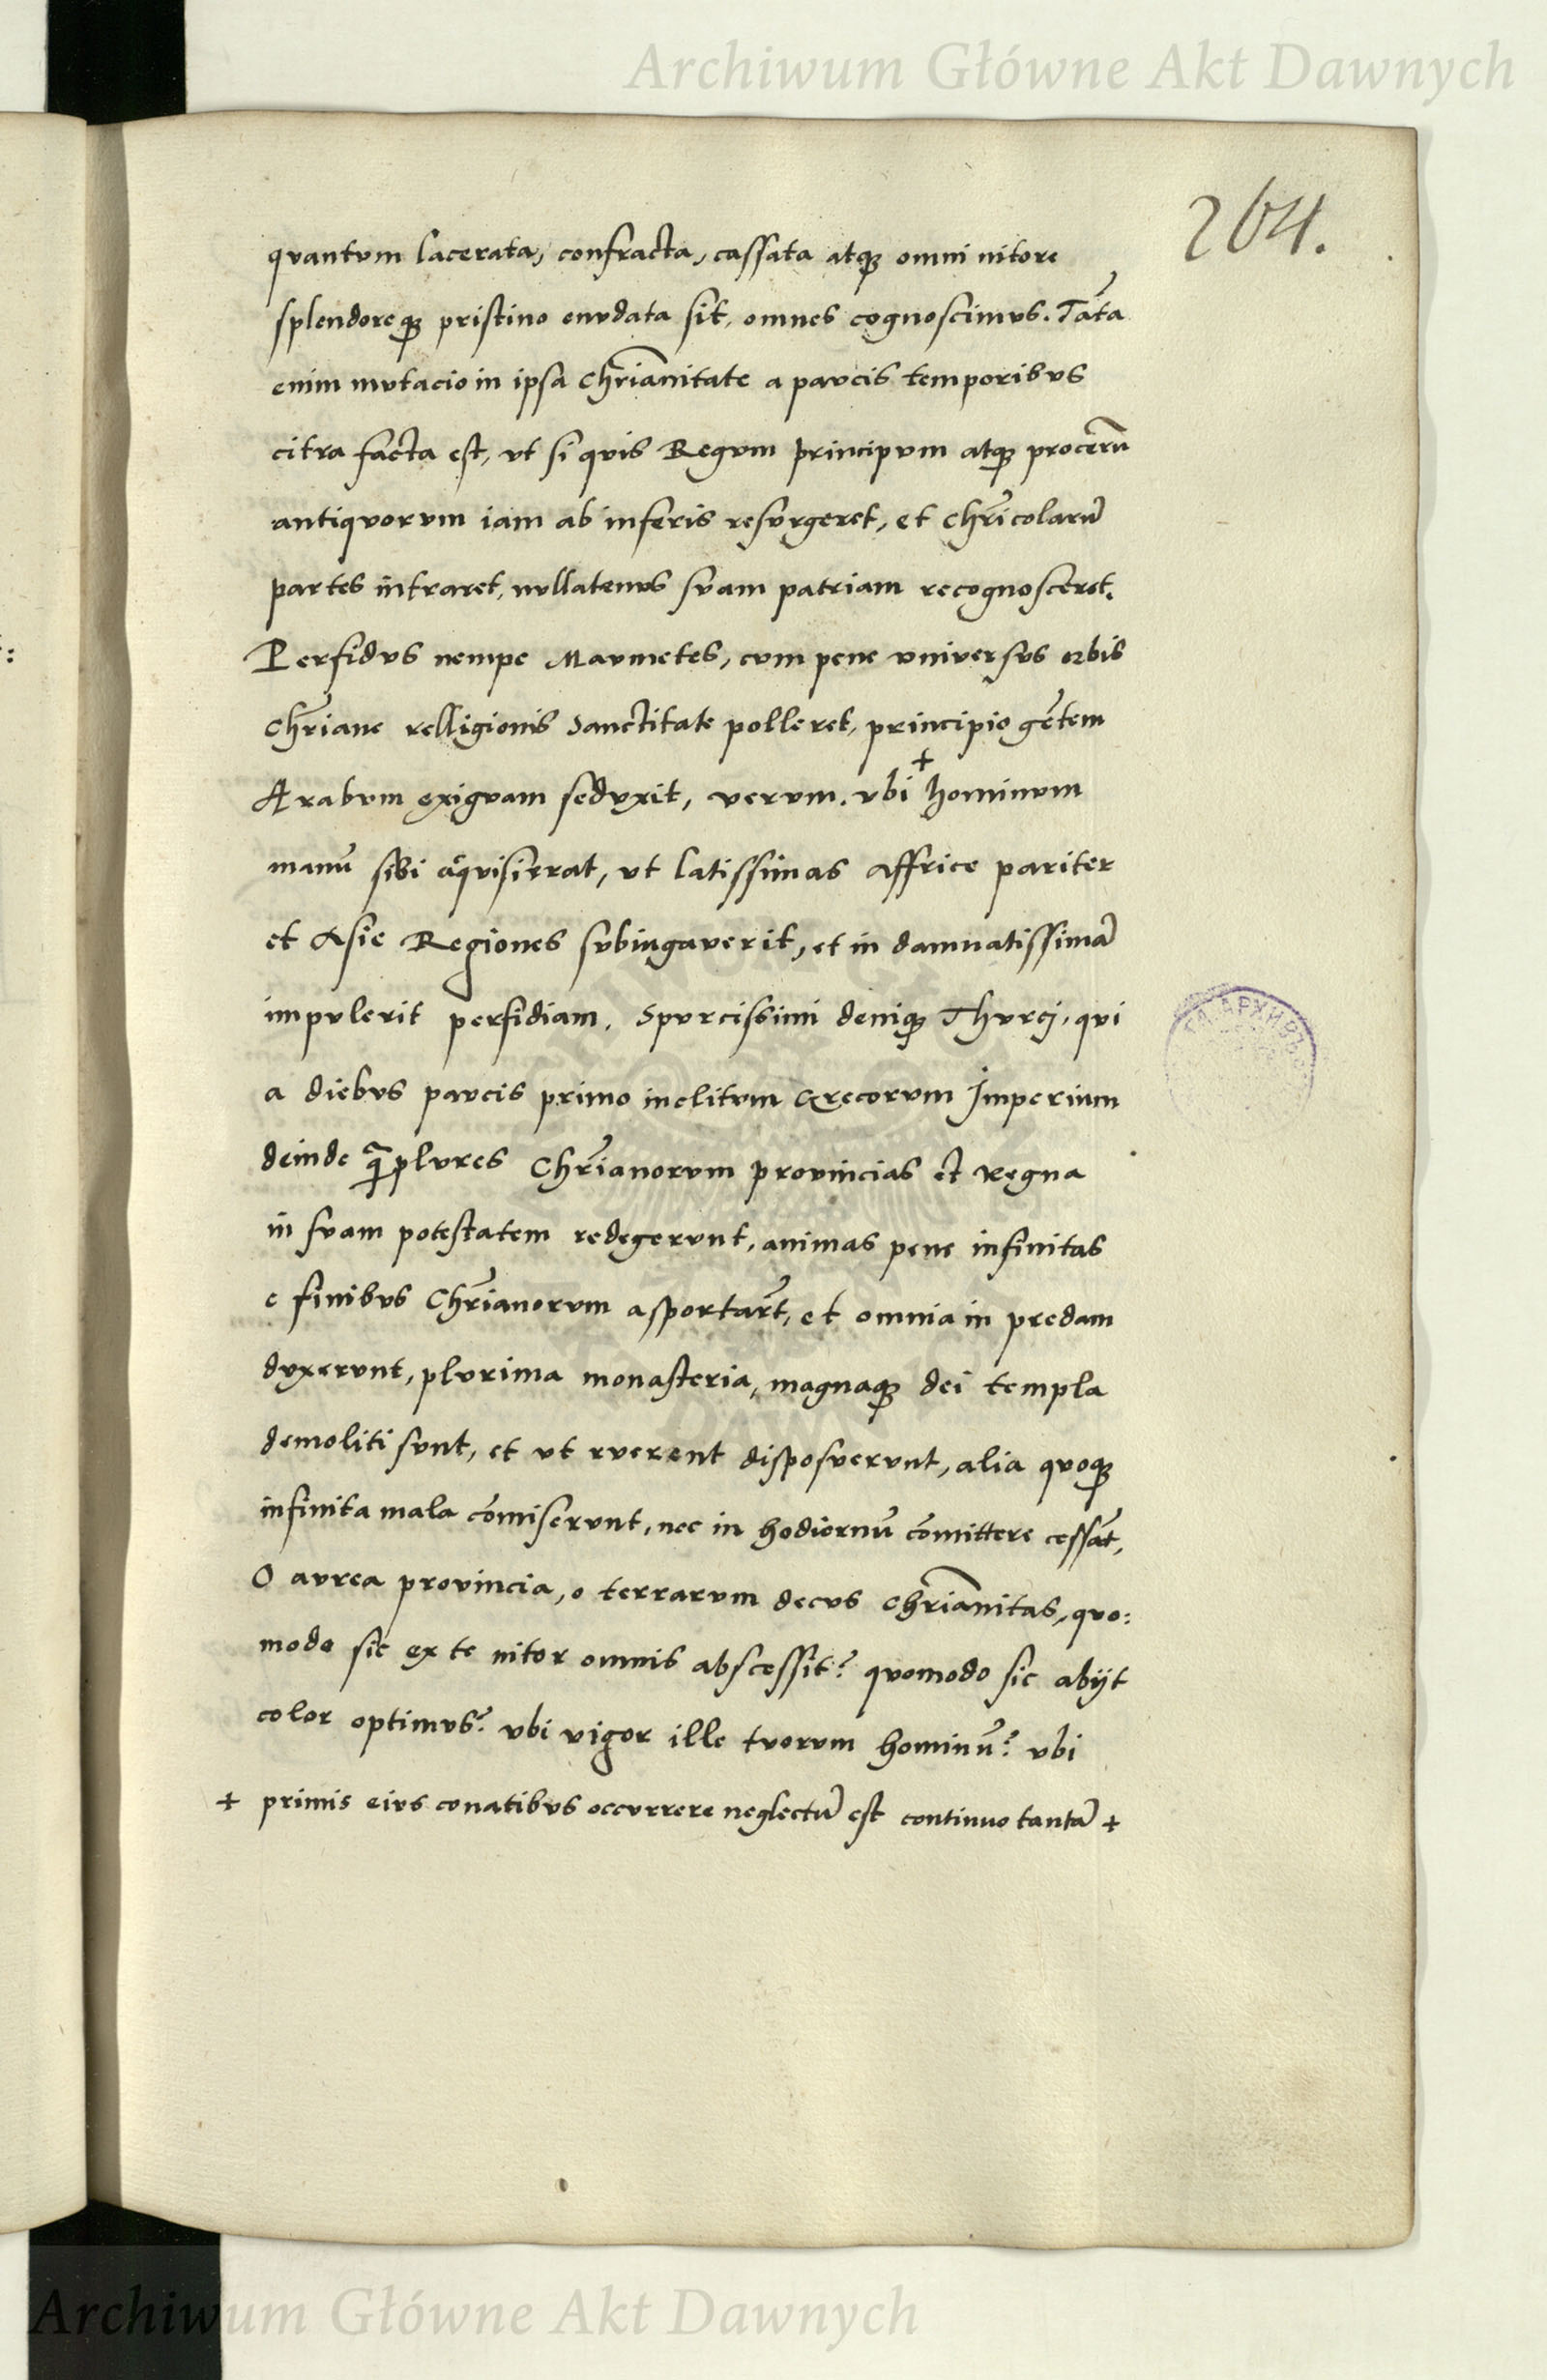 Archiwum Główne Akt Dawnych
264.
qvantvm lacerata, confracta, cassata atqꝫ omni nitore
splendoreqꝫ pristino envdata sit, omnes cognoscimvs. Tāta
enim mvtacio in ipsa Chr̃ianitate a pavcis temporibvs
citra facta est, vt si qvis Regvm principvm atqꝫ procerū
antiqvorvm iam ab inferis resvrgeret, et Chr̃icolarū
partes intraret, nvllatenvs svam patriam recognosceret.
Perfidvs nempe Mavmetes, cvm pene vniversvs orbis
Chr̃iane relligionis Sanctitate polleret, principio gētem
Arabvm exigvam sedvxit, vervm. vbi + hominvm
manū sibi aq̃visierat, vt latissimas Affrice pariter
et Asie Regiones svbiugaverit, et in damnatissimā
impvlerit perfidiam. Spvrcissimi deniqꝫ Thvrcj, qvi
a diebvs pavcis primo inclitvm Grecorvm Jmperium
deinde q̃plvres Chr̃ianorvm provincias et Regna
in svam potestatem redegervnt, animas pene infinitas
e finibvs Chr̃ianorvm asportar̃t, et omnia in predam
dvxervnt, plvrima monasteria, magnaqꝫ dei templa
demoliti svnt, et vt rverent disposvervnt, alia qvoqꝫ
infinita mala cōmiservnt, nec in hodiernū cōmittere cessāt,
O avrea provincia, o terrarvm decvs Chr̃ianitas, qvo:
modo sic ex te nitor omnis abscessit? qvomodo sic abijt
color optimvs? vbi vigor ille tvorvm hominū? vbi
+ primis eivs conatibvs occvrrere neglectū est continvo tantā +
Archiwum Główne Akt Dawnych